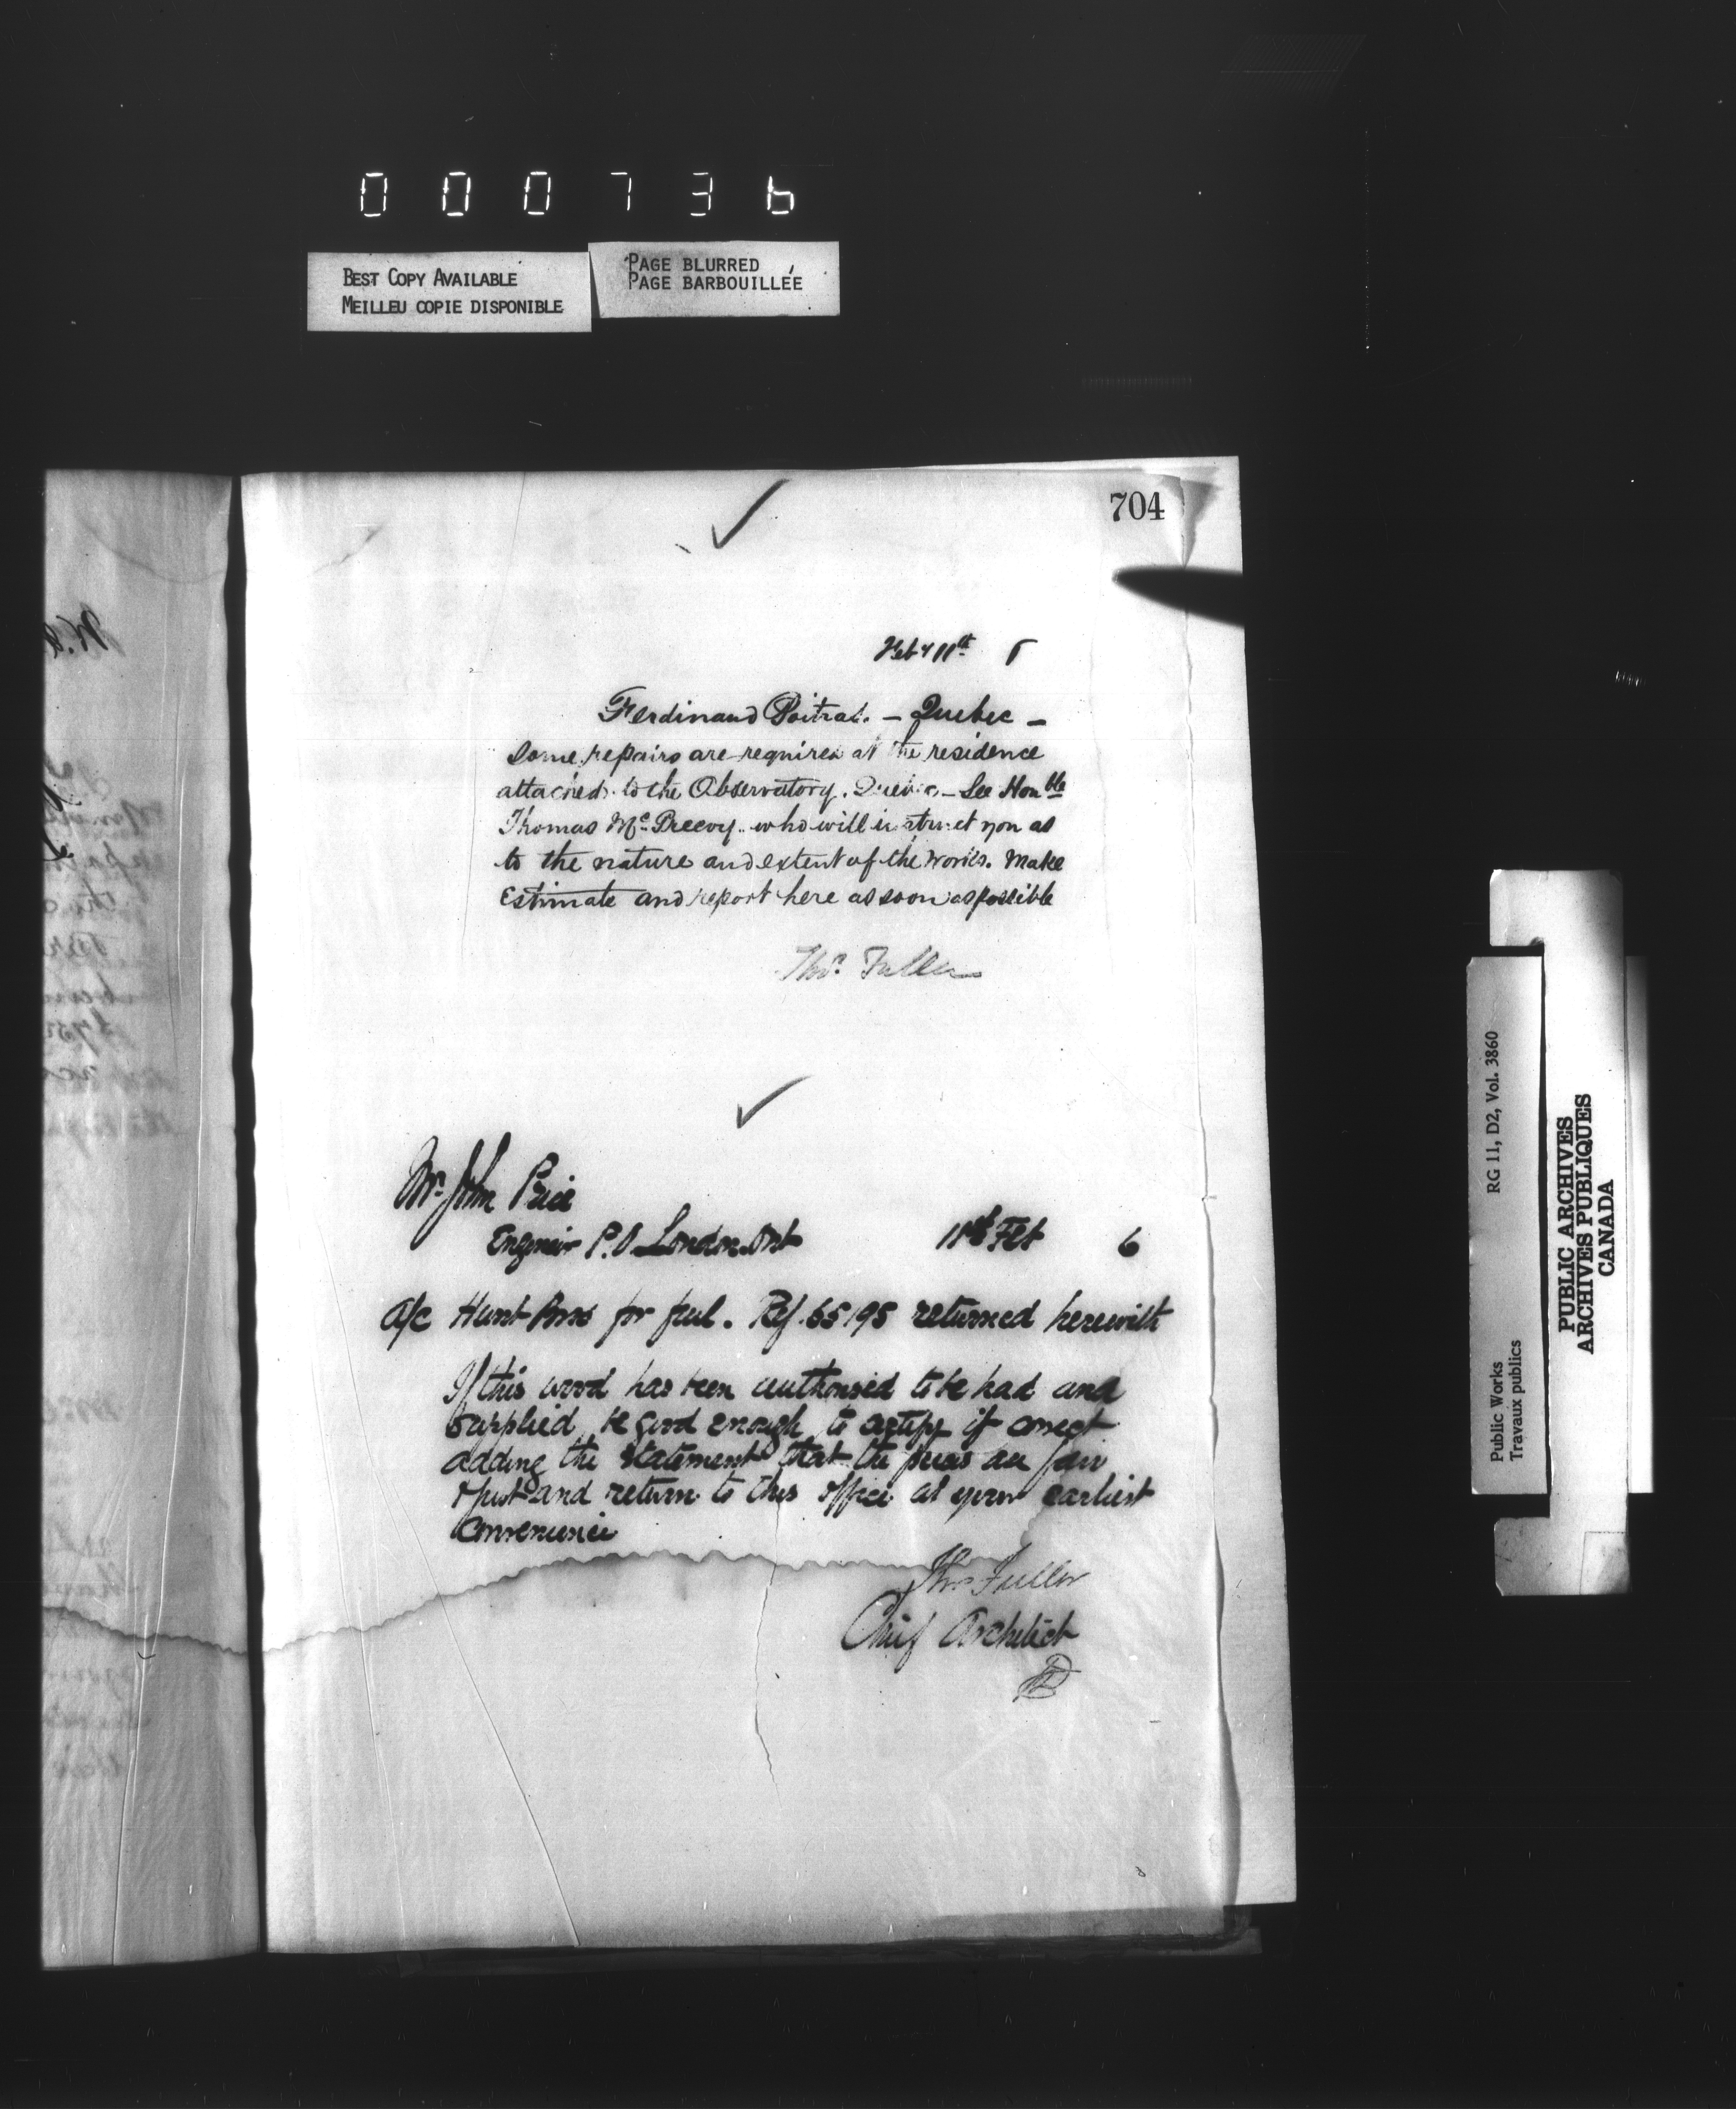 000736
BEST COPY AVAILABLE
MEILLEU COPIE DISPONIBLE
PAGE BLURRED
PAGE BARBOUILLÉE
704
Feby 11th
Ferdinand Poitras. – Quebec –
Some repairs are required at the residence
attached to the Observatory. Quebec – See Honble
Thomas McGreevy who will instruct you as
to the nature and extent of the works. Make
Estimate and report here as soon as possible
Thos. Fuller
Mr. John Price
Engineer P.O. London. Ont 11th Feb 6
A/c Hunt Bros for fuel. Ref. 65195 returned herewith
If this wood has been authorised to be had and
supplied, be good enough to certify if correct
adding the statement that the prices are fair
& just and return to this office at your earliest
convenience
Thos Fuller
Chief Architect
RG 11, D2, Vol. 3860
Public Works
Travaux publics
PUBLIC ARCHIVES
ARCHIVES PUBLIQUES
CANADA